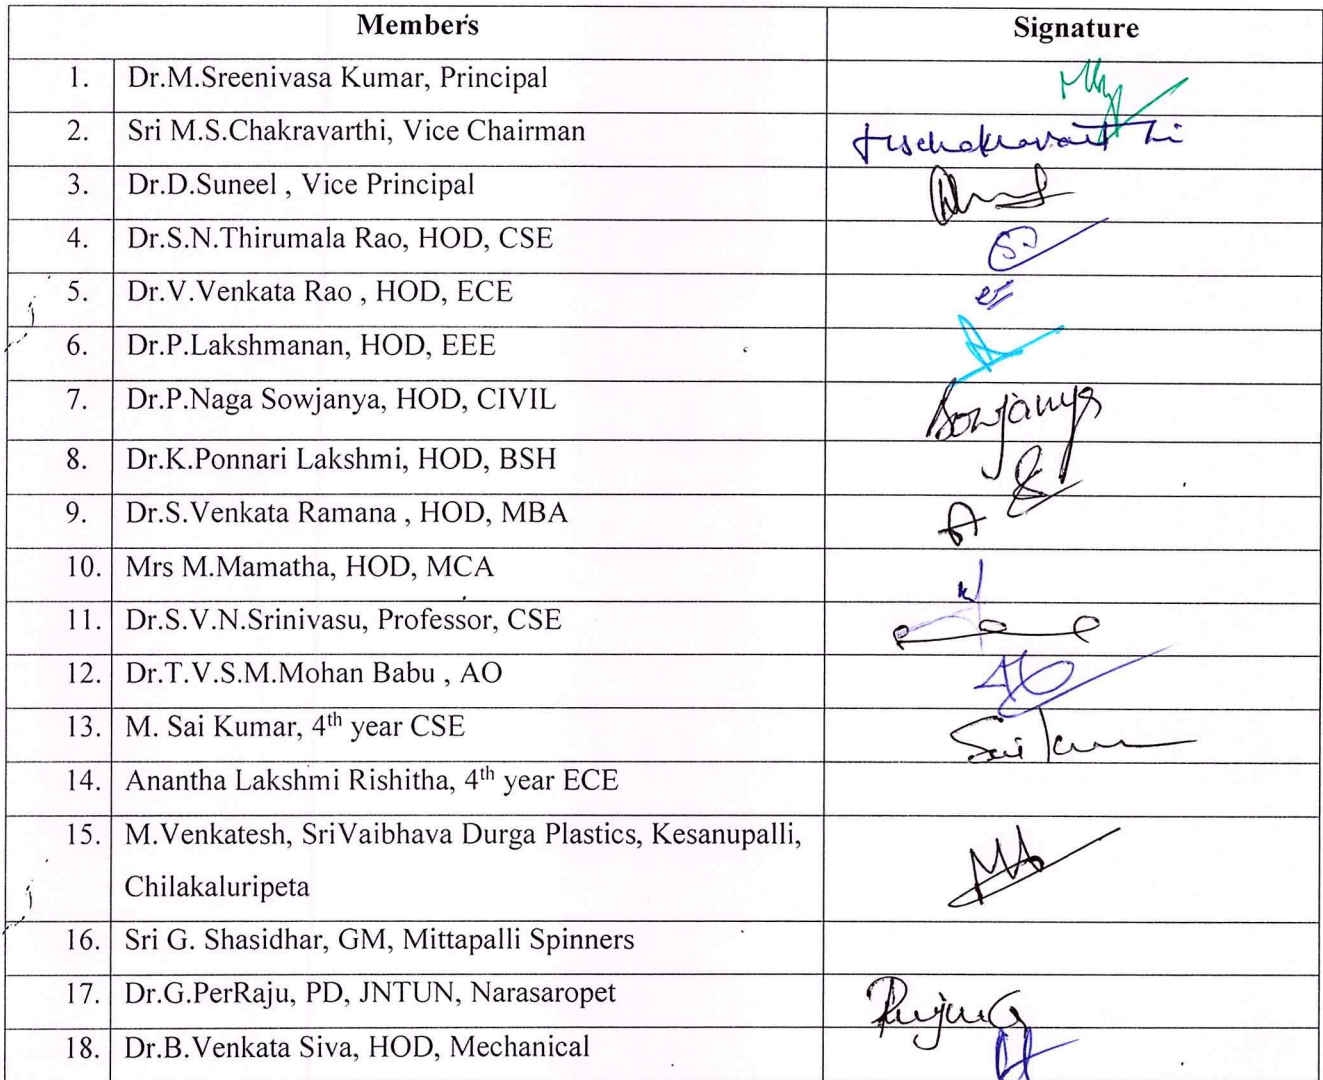 Members Signature
1. Dr.M.Sreenivasa Kumar, Principal
2. Sri M.S.Chakravarthi, Vice Chairman
3. Dr.D.Suneel , Vice Principal
4. Dr.S.N.Thirumala Rao, HOD, CSE
5. Dr.V.Venkata Rao , HOD, ECE
6. Dr.P.Lakshmanan, HOD, EEE
7. Dr.P.Naga Sowjanya, HOD, CIVIL Sowjanya
8. Dr.K.Ponnari Lakshmi, HOD, BSH
9. Dr.S.Venkata Ramana , HOD, MBA
10. Mrs M.Mamatha, HOD, MCA
11. Dr.S.V.N.Srinivasu, Professor, CSE
12. Dr.T.V.S.M.Mohan Babu , AO
13. M. Sai Kumar, 4th year CSE
14. Anantha Lakshmi Rishitha, 4th year ECE
15. M.Venkatesh, SriVaibhava Durga Plastics, Kesanupalli,
Chilakaluripeta
16. Sri G. Shasidhar, GM, Mittapalli Spinners
17. Dr.G.PerRaju, PD, JNTUN, Narasaropet
18. Dr.B.Venkata Siva, HOD, Mechanical